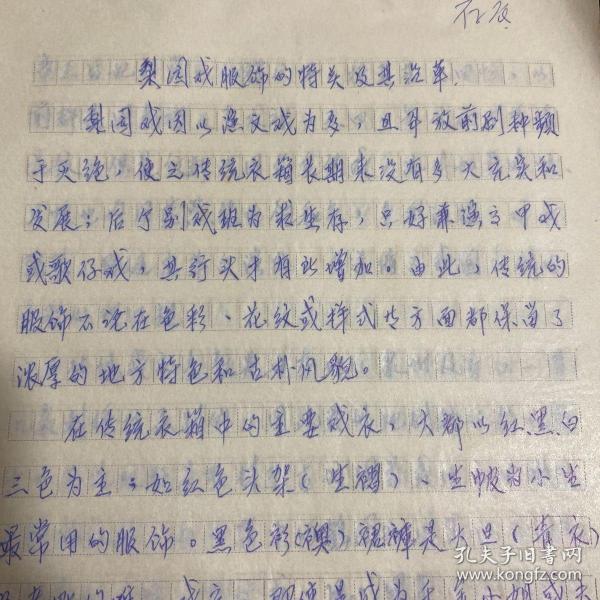 梨园戏服饰的特点及其沿革
梨园戏因以演文戏为多，且解放前剧种频
于灭绝，使之传统衣箱长期来没有多大充实和
发展；后个别戏班为求生存，只好兼演高甲戏
或歌仔戏，其行头才有所增加。由此，传统的
服饰不论在色彩、花纹或样式方面都保留了
浓厚的地方特色和古朴风貌。
在传统衣箱中的重要戏衣，大都以红黑白
三色为主，如红色头架（生褶）、生帔为小生
最常用的服饰。黑色衫（袄）裙裤是大旦（青衣）
孔夫子旧书网
www.kongfz.com